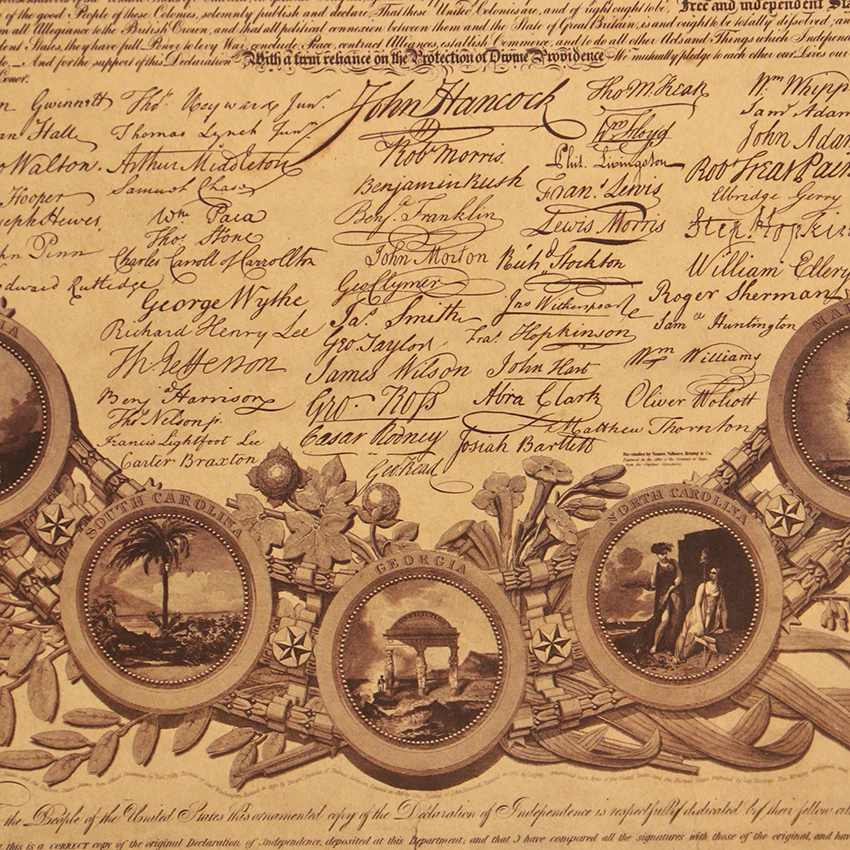 of the good People of these Colonies, solemnly publish and declare, That these United Colonies are, and of right ought to be, Free and independent
all Allegiance to the British Crown, and that all political connexion between them and the State of Great Britain, is and ought to be totally dissolved; and
States, they have full Power to levy War, conclude Peace, contract Alliances, establish Commerce, and to do all other Acts and Things which
And for the support of this Declaration With a firm reliance on the Protection of Divine Providence We mutually pledge to each other our Lives our
Honor.
Gwinnett
Hall
Walton.
Hooper
Hewes,
Penn
Rutledge
Tho.s Heyward Jun.r
Thomas Lynch Jun.r
Arthur Middleton
Samuel Chase
Wm Paca
Tho.s Stone
Charles Carroll of Carrollton
George Wythe
Richard Henry Lee
Th Jefferson
Benj.a Harrison
Tho.s Nelson jr.
Francis Lightfoot Lee
Carter Braxton
John Hancock
Rob.t Morris.
Benjamin Rush
Benj.a Franklin
John Morton
Geo Clymer
Ja.s Smith
Geo. Taylor
James Wilson
Geo. Ross
Caesar Rodney
Geo Read
Tho M.Kean
Wm Floyd
Phil. Livingston
Fran.s Lewis
Lewis Morris
Rich.d Stockton
Jno Witherspoon
Fra.s Hopkinson
John Hart
Abra Clark
Josiah Bartlett
Wm Whipp
Sam.l Adam
John Adam
Rob.t Treat Pain
Elbridge Gerry
Step. Hopkin
William Ellery
Roger Sherman
Sam.el Huntington
Wm Williams
Oliver Wolcott
Matthew Thornton
SOUTH CAROLINA
GEORGIA
NORTH CAROLINA
the People of the United States this ornamental copy of the Declaration of Independence is respectfully dedicated by their fellow
this is a CORRECT copy of the original Declaration of Independence, deposited at this Department; and that I have compared all the signatures with those of the original, and have